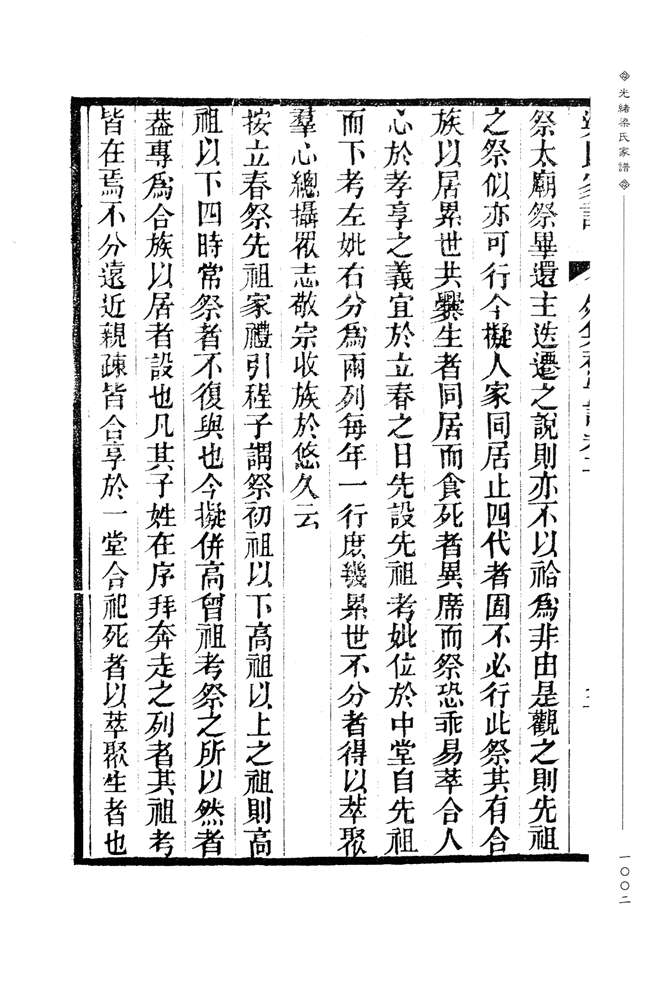 光緒梁氏家譜
一〇〇二
祭太廟祭畢還主迭遷之說則亦不以祫爲非由是觀之則先祖
之祭似亦可行今擬人家同居止四代者固不必行此祭其有合
族以居累世共爨生者同居而食死者異席而祭恐乖易萃合人
心於孝享之義宜於立春之日先設先祖考妣位於中堂自先祖
而下考左妣右分爲兩列每年一行庶幾累世不分者得以萃聚
羣心總攝眾志敬宗收族於悠久云
按立春祭先祖家禮引程子謂祭初祖以下高祖以上之祖則高
祖以下四時常祭者不復與也今擬併高曾祖考祭之所以然者
葢專爲合族以居者設也凡其子姓在序拜奔走之列者其祖考
皆在焉不分遠近親疎皆合享於一堂合祀死者以萃聚生者也